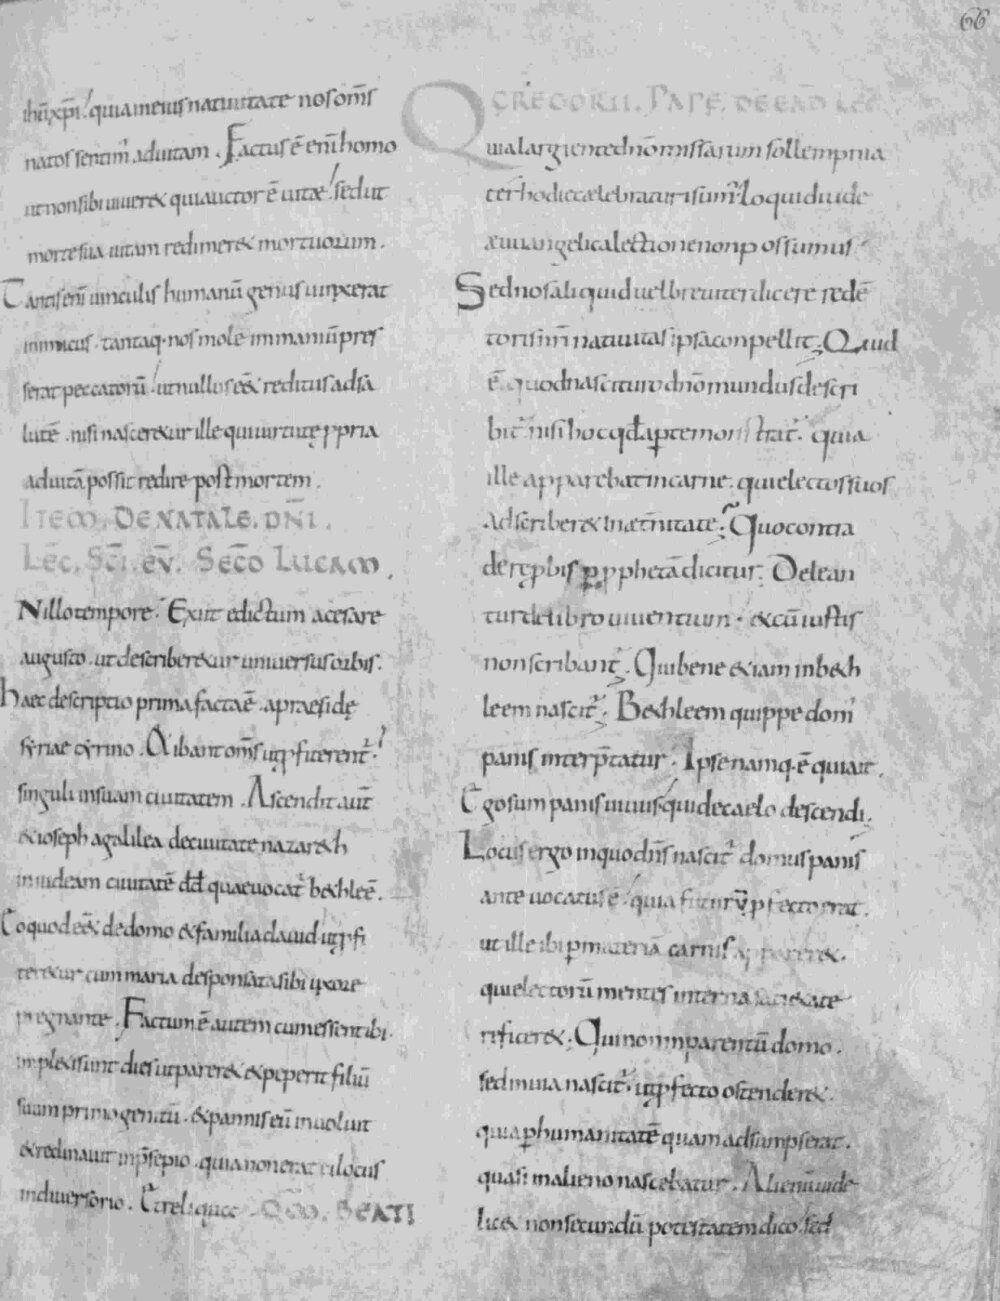 66
ihū xp̄i quia in eius natiuitate nos om̄s
natos sentim' ad uitam . Factus ē enī homo
ut non sibi uiueret qui auctor ē uitae sed ut
morte sua uitam redimeret mortuorum .
Tantis enī uinculis humanū genus uinxerat
inimicus . tantaq· nos mole immaniū pres
serat peccatorū ut nullus eēt reditus ad sa
lutē . nisi nasceretur ille qui uirtute ꝓpria
ad uitā possit redire post mortem .
ITEM . DE NATALE . DN̄I .
LEC̄ . SC̄I . EV̄ . SEC̄D LUCAM .
N illo tempore . Exiit edictum a cesare
augusto . ut describeretur uniuersus orbis .
haec descriptio prima facta ē . a praeside
syriae cyrino . & ibant om̄s ut ꝓfiterent'
singuli in suam ciuitatem . Ascendit aut̄
& ioseph a galilea de ciuitate nazareth
in iudeam ciuitatē dd quae uocat' bethleē .
Eo quod eēt de domo & familia dauid ut ꝓfi
teretur cum maria desponsata sibi uxore
pregnante . Factum ē autem cum essent ibi .
impleti sunt dies ut pareret & peperit filiū
suum primogenitū . & pannis eū inuoluit
& reclinauit in p̄sepio . quia non erat ei locus
in diuersorio . Et reliquae . OM̄ . BEATI
GREGORII . PAPE . DE EAD LEC̄
Quia largiente dn̄o missarum sollempnia
ter hodie caelebraturi sum' loqui diu de
aeuuangelica lectione non possumus
Sed nos aliquid uel breuiter dicere redē
toris nr̄i natiuitas ipsa conpellit ; Quid
ē quod nascituro dn̄o mundus descri
bit' nisi hoc qd aperte monstrat' quia
ille apparebat in carne . qui electos suos
adscriberet in aet̄nitate . Quo contra
de reꝓbis ꝑ ꝓphetā dicitur . Delean
tur de libro uiuentium . & cū iustis
non scribant' . Qui bene etiam in beth
leem nascit' . Bethleem quippe dom'
panis interp̄tatur . Ipse namq· ē qui ait .
Ego sum panis uiuus qui de caelo descendi .
Locus ergo in quo dn̄s nascit' domus panis
ante uocatus ē quia futurū ꝓfecto erat .
ut ille ibi ꝑ materiā carnis appareret .
qui electorū mentes interna satietate
reficeret . Qui non in parentū domo .
sed in uia nascit' . ut ꝓfecto ostenderet .
quia ꝑ humanitatē quam adsumpserat .
quasi in alieno nascebatur . Alienū uide
licet non secundū potestatem dico sed